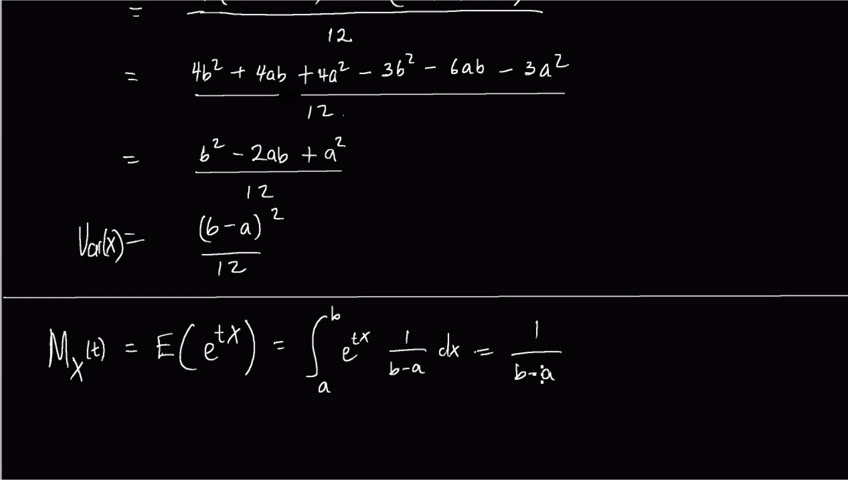 = 12
= 4b² + 4ab + 4a² - 3b² - 6ab - 3a² / 12
= b² - 2ab + a² / 12
Var(X) = (b-a)² / 12
M_X(t) = E(e^{tX}) = ∫_a^b e^{tx} 1/(b-a) dx = 1/(b-a)